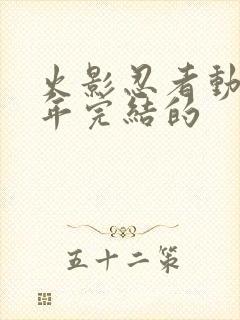 火影忍者動
年完結的
五十二策